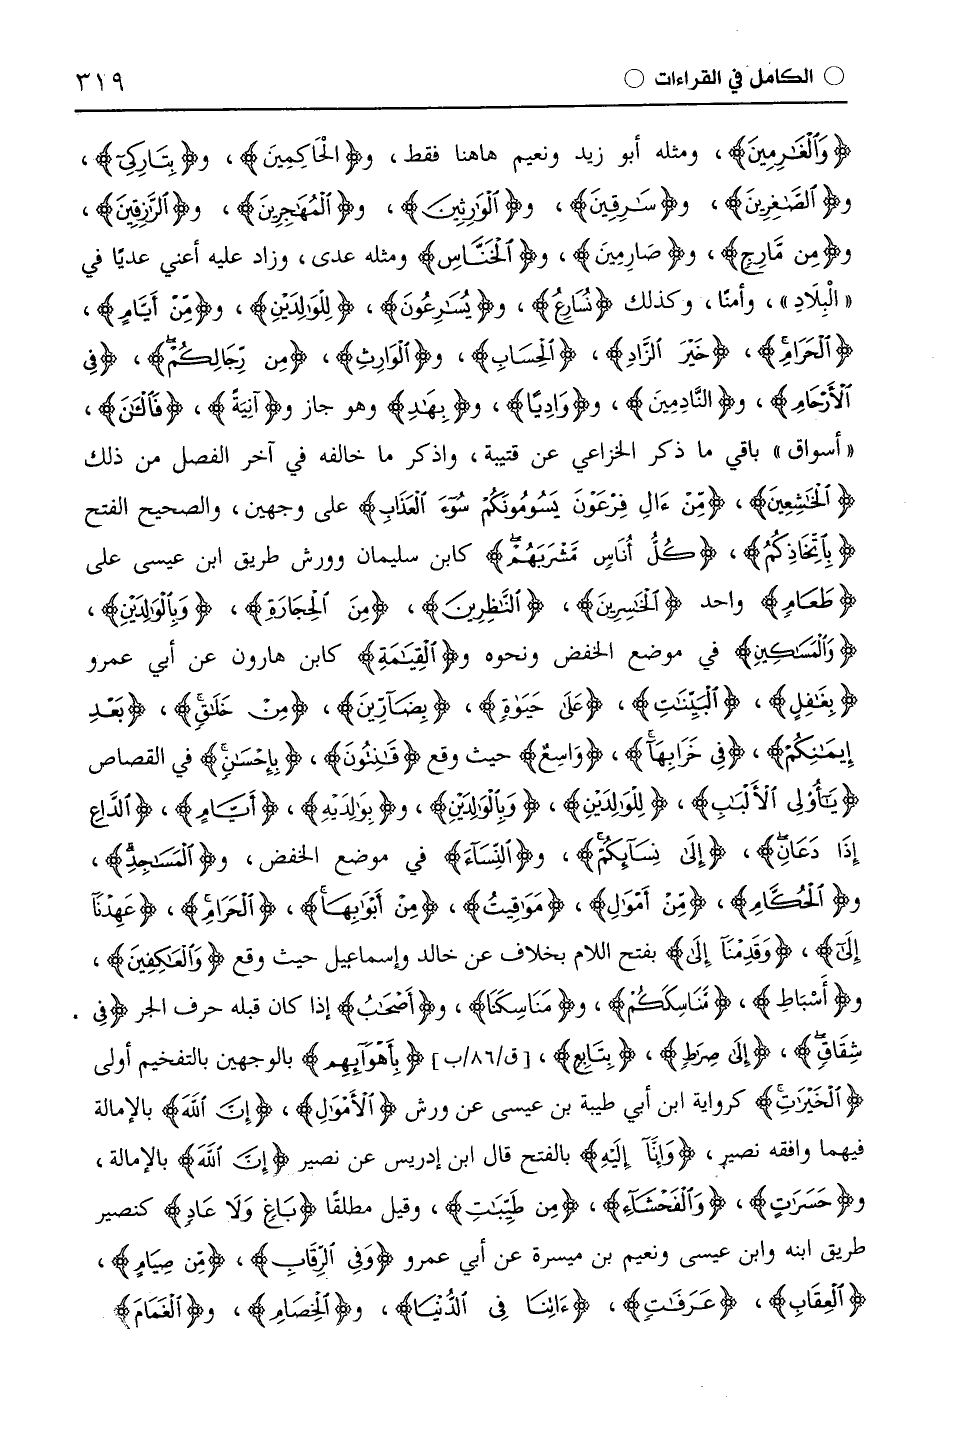 ○ الكامل في القراءات ○ ٣١٩
﴿وَٱلْغَٰرِمِينَ﴾، ومثله أبو زيد ونعيم هاهنا فقط، و﴿الْحَاكِمِينَ﴾، و﴿بِتَارِكِيٓ﴾،
و﴿الصَّٰغِرِينَ﴾، و﴿سَٰرِقِينَ﴾، و﴿ٱلْوَٰرِثِينَ﴾، و﴿الْمُهَٰجِرِينَ﴾، و﴿ٱلرَّٰزِقِينَ﴾،
و﴿مِن مَّارِجٍ﴾، و﴿صَارِمِينَ﴾، و﴿ٱلْخَنَّاسِ﴾ ومثله عدى، وزاد عليه أعني عديًا في
«الْبِلَادِ»، وأمنًا، وكذلك ﴿نُسَارِعُ﴾، و﴿يُسَٰرِعُونَ﴾، ﴿لِلْوَٰلِدَيْنِ﴾، و﴿مِّنْ أَيَّامٍ﴾،
﴿ٱلْحَرَامِ﴾، ﴿خَيْرَ ٱلزَّادِ﴾، ﴿ٱلْحِسَابِ﴾، و﴿ٱلْوَارِثِ﴾، ﴿مِن رِّجَالِكُمْ﴾، ﴿فِى
ٱلْأَرْحَامِ﴾، و﴿النَّادِمِينَ﴾، و﴿وَادِيًا﴾، و﴿بِهَٰدِ﴾ وهو جاز و﴿آنِيَةً﴾، ﴿فَٱلْـَٰٔنَ﴾،
«أسواق» باقي ما ذكر الخزاعي عن قتيبة، واذكر ما خالفه في آخر الفصل من ذلك
﴿ٱلْخَٰشِعِينَ﴾، ﴿مِّنْ ءَالِ فِرْعَوْنَ يَسُومُونَكُمْ سُوٓءَ ٱلْعَذَابِ﴾ على وجهين، والصحيح الفتح
﴿بِٱتِّخَاذِكُمُ﴾، ﴿كُلُّ أُنَاسٍ مَّشْرَبَهُمْ﴾ كابن سليمان وورش طريق ابن عيسى على
﴿طَعَامٍ﴾ واحد ﴿ٱلْخَٰسِرِينَ﴾، ﴿ٱلنَّٰظِرِينَ﴾، ﴿مِنَ ٱلْحِجَارَةِ﴾، ﴿وَبِٱلْوَٰلِدَيْنِ﴾،
﴿وَٱلْمَسَٰكِينِ﴾ في موضع الخفض ونحوه و﴿ٱلْقِيَٰمَةِ﴾ كابن هارون عن أبي عمرو
﴿بِغَٰفِلٍ﴾، ﴿ٱلْبَيِّنَٰتِ﴾، ﴿عَلَىٰ حَيَوٰةٍ﴾، ﴿بِضَآرِّينَ﴾، ﴿مِنْ خَلَٰقٍ﴾، ﴿بَعْدِ
إِيمَٰنِكُمْ﴾، ﴿فِى خَرَابِهَآ﴾، ﴿وَاسِعٌ﴾ حيث وقع ﴿قَٰنِتُونَ﴾، ﴿بِإِحْسَٰنٍ﴾ في القصاص
﴿يَٰٓأُو۟لِى ٱلْأَلْبَٰبِ﴾، ﴿لِلْوَٰلِدَيْنِ﴾، ﴿وَبِٱلْوَٰلِدَيْنِ﴾، و﴿بِوَٰلِدَيْهِ﴾، ﴿أَيَّامٍ﴾، ﴿ٱلدَّاعِ
إِذَا دَعَانِ﴾، ﴿إِلَىٰ نِسَآئِكُمْ﴾، و﴿ٱلنِّسَآءَ﴾ في موضع الخفض، و﴿ٱلْمَسَٰجِدِ﴾،
و﴿ٱلْحُكَّامِ﴾، ﴿مِّنْ أَمْوَٰلِ﴾، ﴿مَوَٰقِيتُ﴾، ﴿مِنْ أَبْوَٰبِهَا﴾، ﴿ٱلْحَرَامِ﴾، ﴿عَهِدْنَآ
إِلَىٰٓ﴾، ﴿وَقَدِمْنَآ إِلَىٰ﴾ بفتح اللام بخلاف عن خالد وإسماعيل حيث وقع ﴿وَٱلْعَٰكِفِينَ﴾،
و﴿أَسْبَاطِ﴾، ﴿مَّنَاسِكَكُمْ﴾، و﴿مَنَاسِكَنَا﴾، و﴿أَصْحَٰبُ﴾ إذا كان قبله حرف الجر ﴿فِى
شِقَاقٍ﴾، ﴿إِلَىٰ صِرَٰطٍ﴾، ﴿بِتَابِعٍ﴾، [ق/٨٦/ب] ﴿بِأَهْوَآئِهِم﴾ بالوجهين بالتفخيم أولى
﴿ٱلْخَيْرَٰتِ﴾ كرواية ابن أبي طيبة بن عيسى عن ورش ﴿ٱلْأَمْوَٰلِ﴾، ﴿إِنَّ ٱللَّهَ﴾ بالإمالة
فيهما وافقه نصير، ﴿وَإِنَّآ إِلَيْهِ﴾ بالفتح قال ابن إدريس عن نصير ﴿إِنَّ ٱللَّهَ﴾ بالإمالة،
و﴿حَسَرَٰتٍ﴾، ﴿وَٱلْفَحْشَآءِ﴾، ﴿مِن طَيِّبَٰتِ﴾، وقيل مطلقًا ﴿بَاغٍ وَلَا عَادٍ﴾ كنصير
طريق ابنه وابن عيسى ونعيم بن ميسرة عن أبي عمرو ﴿وَفِى ٱلرِّقَابِ﴾، ﴿مِّن صِيَامٍ﴾،
﴿ٱلْعِقَابِ﴾، ﴿عَرَفَٰتٍ﴾، ﴿ءَاتِنَا فِى ٱلدُّنْيَا﴾، و﴿ٱلْخِصَامِ﴾، و﴿ٱلْغَمَامَ﴾